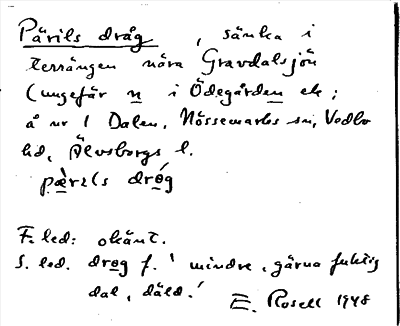 Pärils dråg, sänka i
terrängen nära Gravdalsjön
(ungefär n i Ödegården ek;
å nr 1 Dalen, Nössemarks sn, Vedbo
hd, Älvsborgs l.
pæ̀rɩls drǿg
F. led: okänt.
S. led. drøg f. ' mindre, gärna fuktig
dal, däld.'
E. Rosell 1948